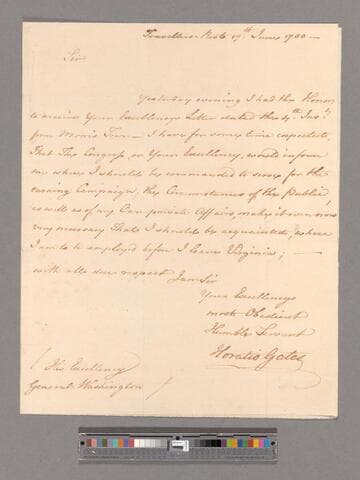 Travellers Rest 17th June 1780 —
Sir
Yesterday evening I had the Honor
to receive Your Excellencys Letter dated the 4th Inst
from Morris Town — I have for some time expected
That The Congress, or Your Excellency, would inform
me where I should be commanded to serve for the
ensuing Campaign, the Circumstances of the Public,
as well as of my Own private Affairs, makes it even now
very necessary That I should be acquainted, where
I am to be employed before I leave Virginia; —
with all due respect I am Sir
Your Excellencys
most Obedient
Humble Servant
Horatio Gates
His Excellency
General Washington